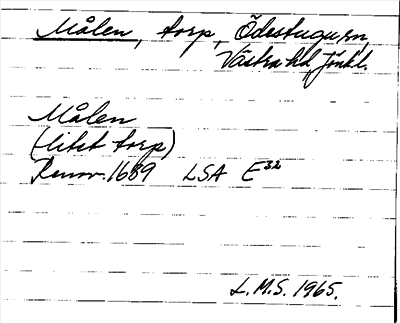 Målen, torp, Ödestugu sn,
Västra hd, Jönkl.
Målen
(litet torp)
Renov. 1689 LSA E32
L.M.S. 1965.